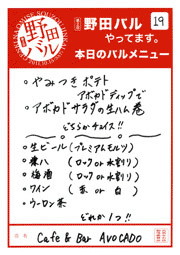 野田バル
第2回 野田バル 19
やってます。
本日のバルメニュー
・やみつきポテト
アボカドディップで
・アボカドサラダの生ハム巻
どちらかチョイス!!
・生ビール(プレミアムモルツ)
・兼八 (ロックor水割り)
・梅酒 (ロックor水割り)
・ワイン (赤 or 白)
・ウーロン茶
どれか1つ!!
店名
Cafe & Bar AVOCADO